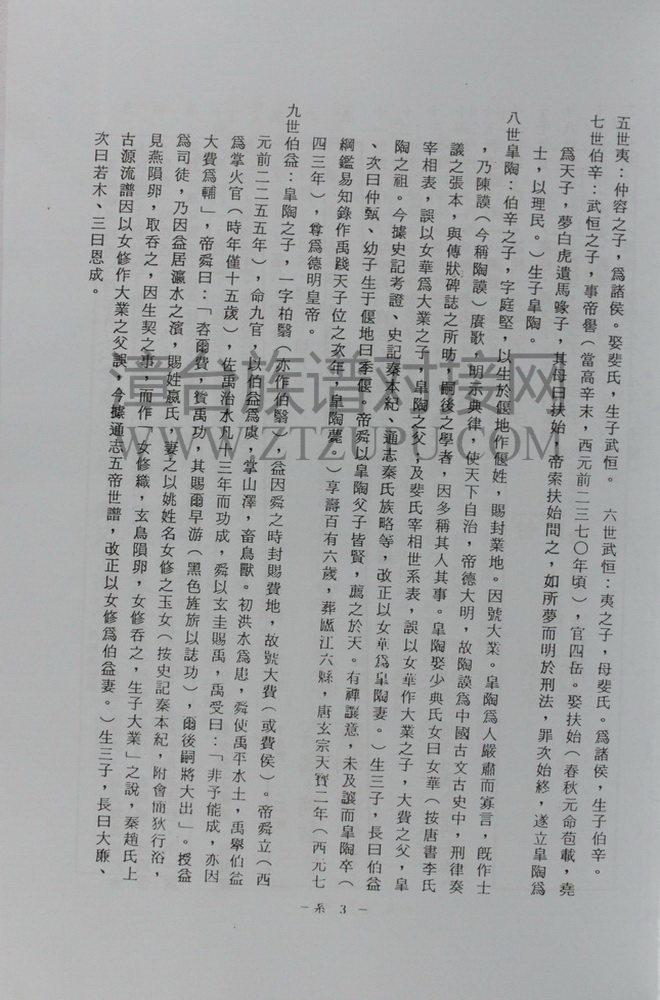 五世夷：仲容之子，爲諸侯。娶斐氏，生子武恒。　六世武恒：夷之子，母斐氏。爲諸侯，生子伯辛。
七世伯辛：武恒之子，事帝嚳（當高辛末，西元前二三七〇年頃），官四岳。娶扶始（春秋元命苞載，堯
爲天子，夢白虎遺馬喙子，其母曰扶始，帝索扶始問之，如所夢而明於刑法，罪次始終，遂立皐陶爲
士，以理民。）生子皐陶。
八世皐陶：伯辛之子，字庭堅，以生於偃地作偃姓，賜封業地。因號大業。皐陶爲人嚴肅而寡言，旣作士
，乃陳謨（今稱陶謨）賡歌，明示典律，使天下自治，帝德大明，故陶謨爲中國古文古史中，刑律奏
議之張本，與傳狀碑誌之所昉，嗣後之學者，因多稱其人其事。皐陶娶少典氏女曰女華（按唐書李氏
宰相表，誤以女華爲大業之子，皐陶之父，及斐氏宰相世系表，誤以女華作大業之子，大費之父，皐
陶之祖。今據史記考證、史記秦本紀，通志秦氏族略等，改正以女華爲皐陶妻。）生三子，長曰伯益
、次曰仲甄、幼子生于偃地曰季偃。帝舜以皐陶父子皆賢，薦之於天。有禪讓意，未及讓而皐陶卒（
綱鑑易知錄作禹踐天子位之次年，皐陶薨。）享壽百有六歲，葬廬江六縣，唐玄宗天寶二年（西元七
四三年），尊爲德明皇帝。
九世伯益：皐陶之子，一字柏翳（亦作伯翳），益因舜之時封賜費地，故號大費（或費侯）。帝舜立（西
元前二二五五年），命九官，以伯益爲虞，掌山澤，畜鳥獸。初洪水爲患，舜使禹平水土，禹舉伯益
爲掌火官（時年僅十五歲），佐禹治水凡十三年而功成，舜以玄圭賜禹，禹受曰：「非予能成，亦因
大費爲輔」，帝舜曰：「咨爾費，賛禹功，其賜爾早游（黑色旌旅以誌功），爾後嗣將大出」。授益
爲司徒，乃因益居瀛水之濱，賜姓嬴氏，妻之以姚姓名女修之玉女（按史記秦本紀，附會簡狄行浴，
見燕隕卵，取吞之，因生契之事，而作「女修織，玄鳥隕卵，女修吞之，生子大業」之說，秦趙氏上
古源流譜因以女修作大業之父誤，今據通志五帝世譜，改正以女修爲伯益妻。）生三子，長曰大廉、
次曰若木、三曰恩成。
－系 3 －
漳台族谱对接网
WWW.ZTZUPU.COM